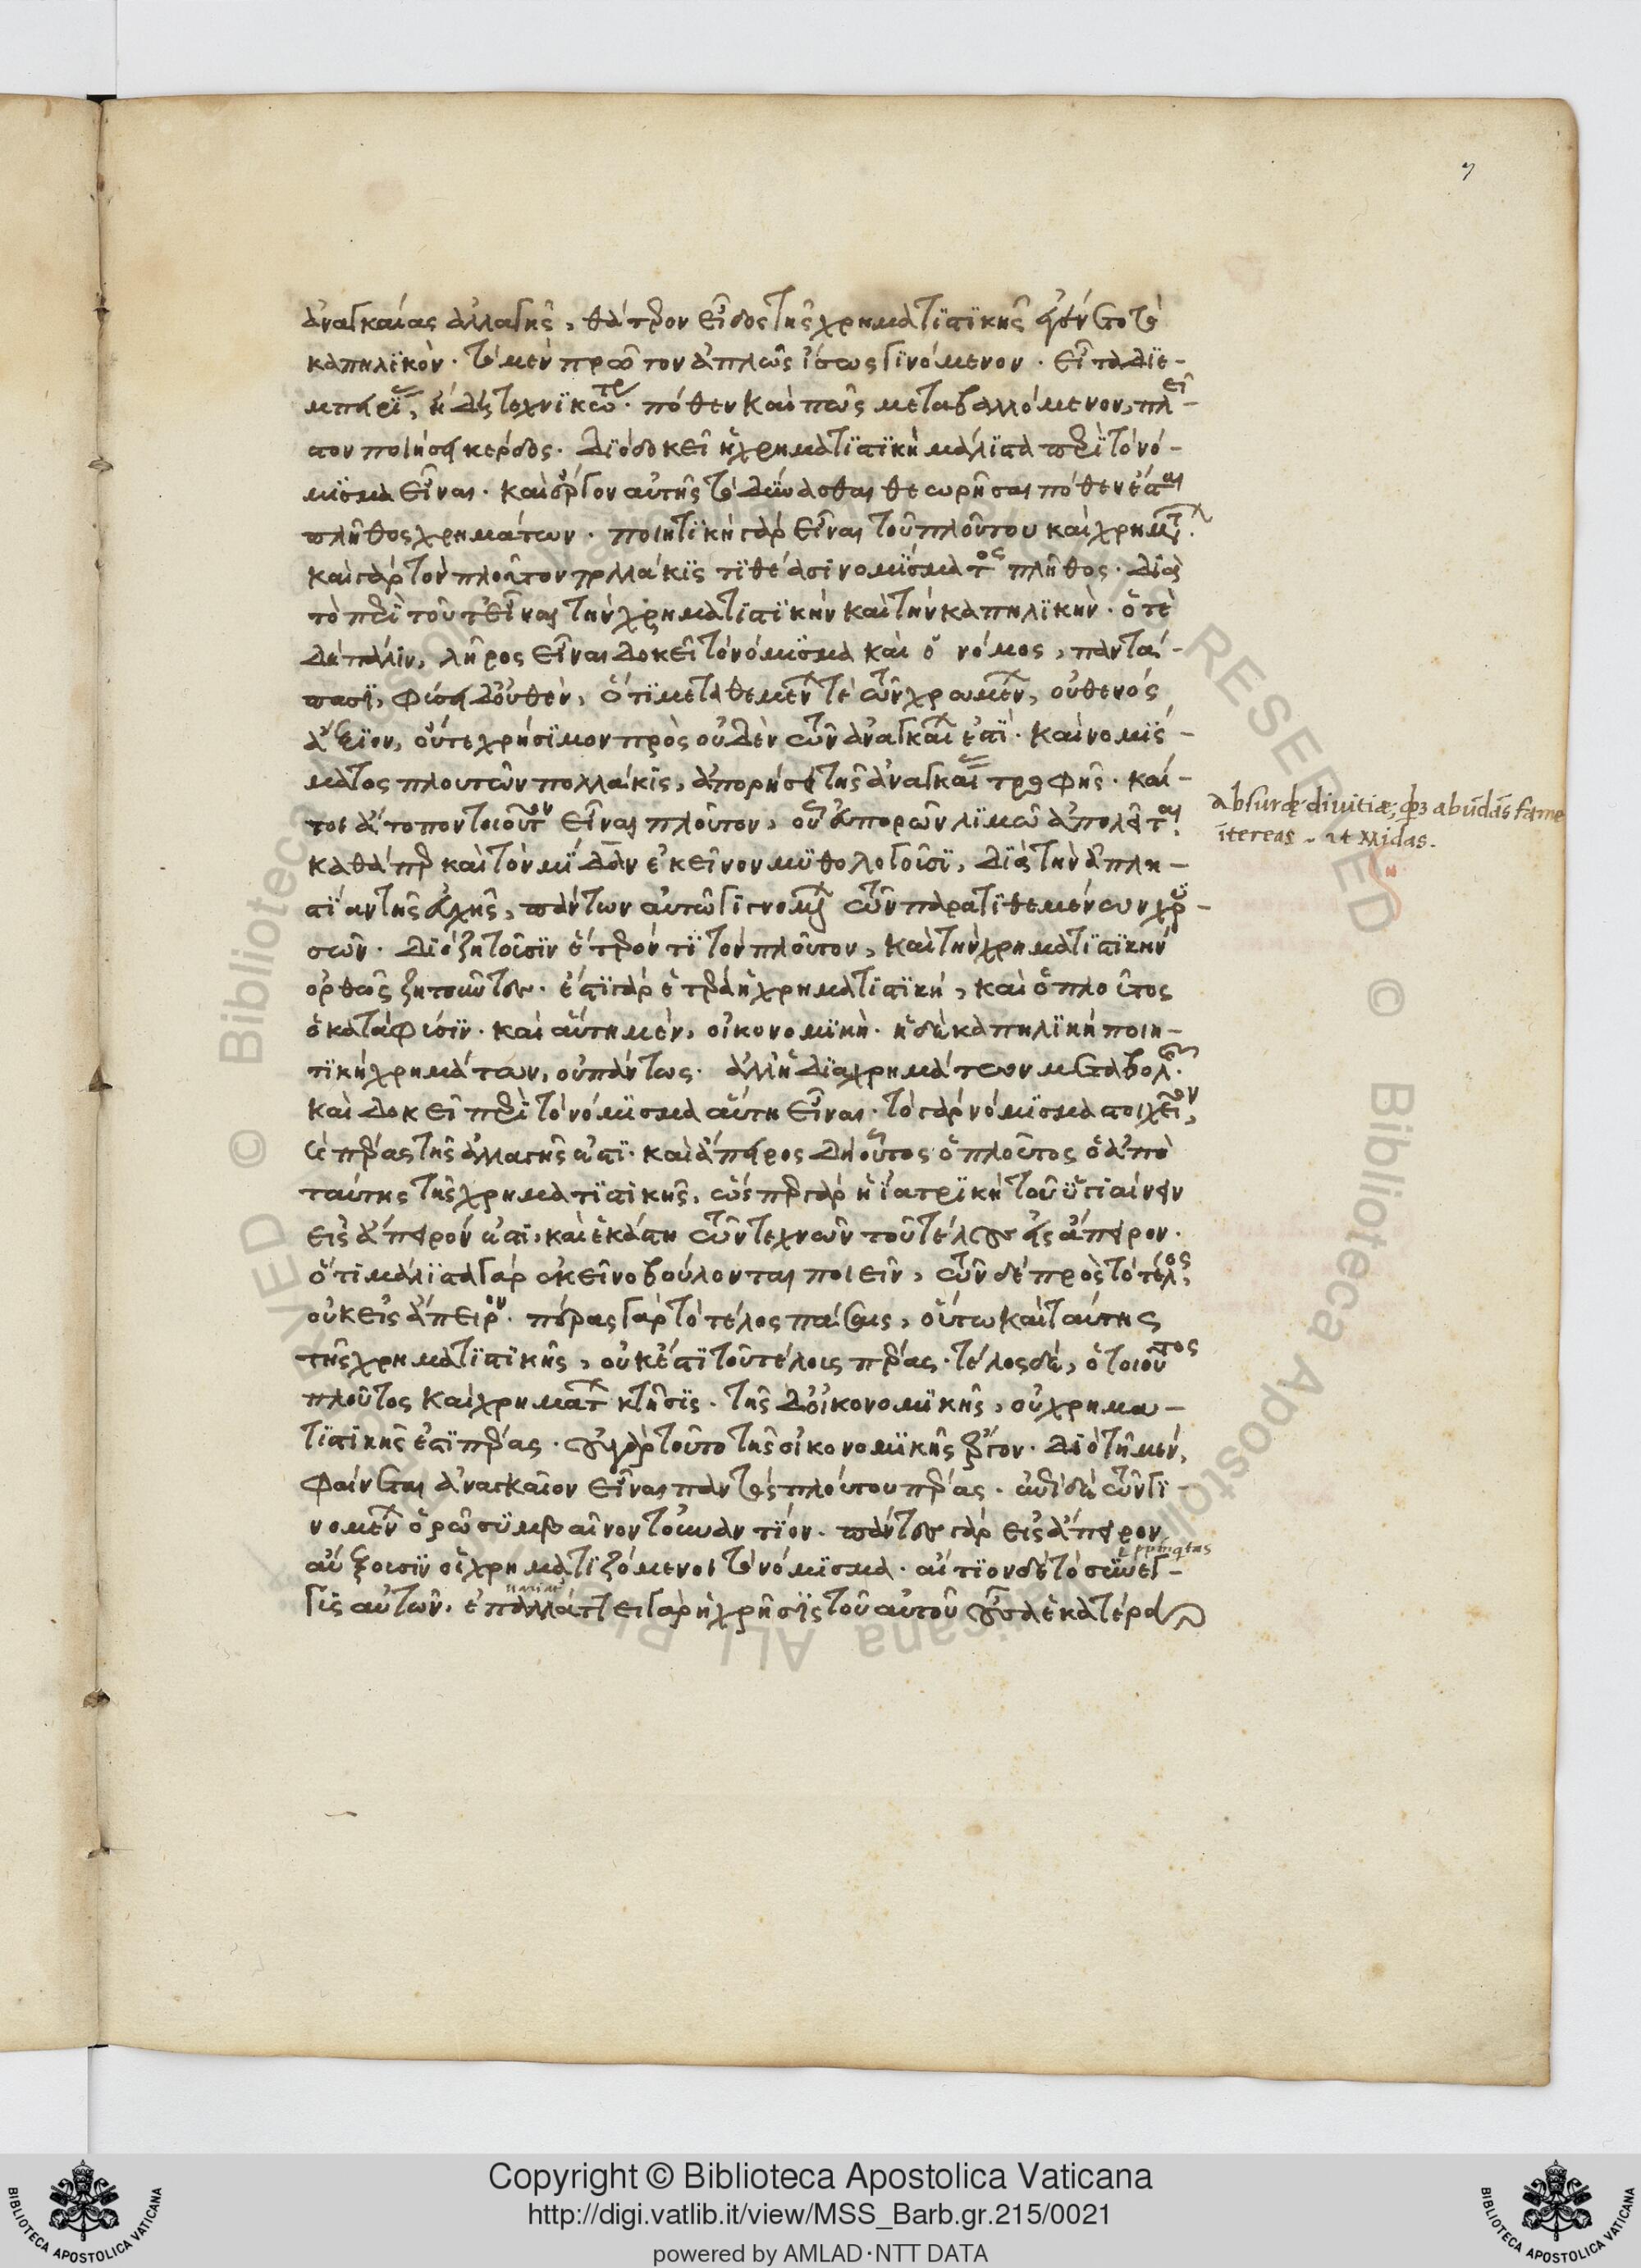 7
ἀναγκαίας ἀλλαγῆς, θάτερον εἶδος τῆς χρηματιστικῆς ἐγένετο τὸ
καπηλικὸν· τὸ μὲν πρῶτον ἁπλῶς ἴσως γινόμενον· εἶτα δι' ἐ-
μπειρίας ἤδη τεχνικώτερον· πόθεν καὶ πῶς μεταβαλλόμενον, πλεῖ-
στον ποιήσει κέρδος· διὸ δοκεῖ ἡ χρηματιστικὴ μάλιστα περὶ τὸ νό-
μισμα εἶναι· καὶ ἔργον αὐτῆς τὸ δύνασθαι θεωρῆσαι πόθεν ἔσται
πλῆθος χρημάτων· ποιητικὴ γὰρ εἶναι τοῦ πλούτου καὶ χρημάτων·
καὶ γὰρ τὸν πλοῦτον πολλάκις τιθέασι νομίσματος πλῆθος· διὰ
τὸ περὶ τοῦτ' εἶναι τὴν χρηματιστικὴν καὶ τὴν καπηλικὴν· ὁτὲ
δὲ πάλιν, λῆρος εἶναι δοκεῖ τὸ νόμισμα καὶ ὁ νόμος, παντά-
πασι, φύσει δ' οὐθὲν, ὅτι μεταθεμένων τε τῶν χρωμένων, οὐθενὸς
ἄξιον, οὔτε χρήσιμον πρὸς οὐδὲν τῶν ἀναγκαίων ἐστὶ· καὶ νομίσ-
ματος πλουτῶν πολλάκις, ἀπορήσει τῆς ἀναγκαίας τροφῆς· καί-
τοι ἄτοπον τοιοῦτον εἶναι πλοῦτον, οὗ εὐπορῶν λιμῷ ἀπολεῖται·
καθάπερ καὶ τὸν μίδαν ἐκεῖνον μυθολογοῦσι, διὰ τὴν ἀπλη-
στίαν τῆς εὐχῆς, πάντων αὐτῷ γιγνομένων τῶν παρατιθεμένων χρυ-
σῶν· διὸ ζητοῦσιν ἕτερόν τι τὸν πλοῦτον, καὶ τὴν χρηματιστικὴν
ὀρθῶς ζητοῦντες· ἔστι γὰρ ἑτέρα ἡ χρηματιστικὴ, καὶ ὁ πλοῦτος
ὁ κατὰ φύσιν· καὶ αὕτη μὲν, οἰκονομικὴ· ἡ δὲ καπηλικὴ ποιη-
τικὴ χρημάτων, οὐ πάντως· ἀλλ' ἢ διὰ χρημάτων μεταβολῆς·
καὶ δοκεῖ περὶ τὸ νόμισμα αὕτη εἶναι· τὸ γὰρ νόμισμα στοιχεῖον,
καὶ πέρας τῆς ἀλλαγῆς ἐστι· καὶ ἄπειρος δὴ οὗτος ὁ πλοῦτος ὁ ἀπὸ
ταύτης τῆς χρηματιστικῆς, ὥσπερ γὰρ ἡ ἰατρικὴ τοῦ ὑγιαίνειν
εἰς ἄπειρόν ἐστι, καὶ ἑκάστη τῶν τεχνῶν τοῦ τέλους εἰς ἄπειρον·
ὅτι μάλιστα γὰρ ἐκεῖνο βούλονται ποιεῖν, τῶν δὲ πρὸς τὸ τέλος,
οὐκ εἰς ἄπειρον· πέρας γὰρ τὸ τέλος πάσαις, οὕτω καὶ ταύτης
τῆς χρηματιστικῆς, οὐκ ἔστι τοῦ τέλους πέρας· τέλος δὲ, ὁ τοιοῦτος
πλοῦτος καὶ χρημάτων κτῆσις· τῆς δ' οἰκονομικῆς, οὐ χρημα-
τιστικῆς ἐστὶ πέρας· οὐ γὰρ τοῦτο τῆς οἰκονομικῆς ἔργον· διὸ τῇ μὲν,
φαίνεται ἀναγκαῖον εἶναι παντὸς πλούτου πέρας· ἐπὶ δὲ τῶν γι-
νομένων ὁρῶ συμβαῖνον τοὐναντίον· πάντες γὰρ εἰς ἄπειρον
αὔξουσιν οἱ χρηματιζόμενοι τὸ νόμισμα· αἴτιον δὲ τὸ σύνεγ-
γυς αὐτῶν· ἐπαλλάττει γὰρ ἡ χρῆσις τοῦ αὐτοῦ οὖσα ἑκατέρα
absurdę divitiæ, quibus abūdās fame
ītereas. ut Midas.
Copyright © Biblioteca Apostolica Vaticana
http://digi.vatlib.it/view/MSS_Barb.gr.215/0021
powered by AMLAD·NTT DATA
BIBLIOTECA APOSTOLICA VATICANA
BIBLIOTECA APOSTOLICA VATICANA